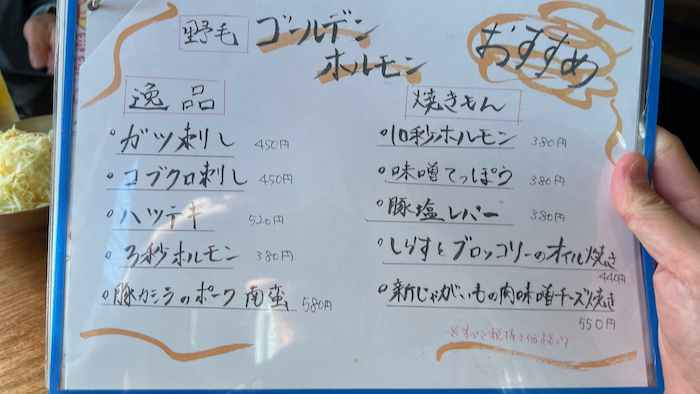 野毛 ゴールデン
ホルモン
おすすめ
逸品
・ガツ刺し 450円
・コブクロ刺し 450円
・ハツテキ 520円
・3秒ホルモン 380円
・豚カシラのポーク南蛮 580円
焼きもん
・10秒ホルモン 380円
・味噌てっぽう 380円
・豚塩レバー 380円
・しらすとブロッコリーのオイル焼き
440円
・新じゃがいもの肉味噌チーズ焼き
550円
※すべて税抜き価格です